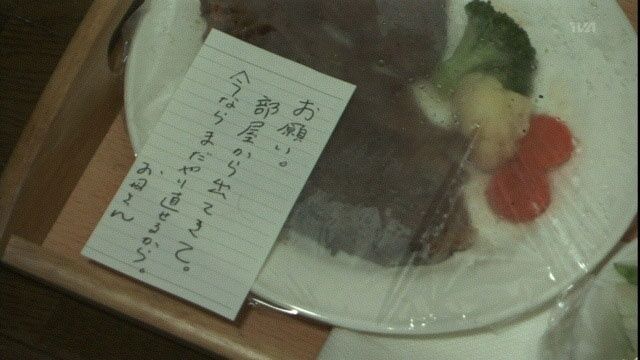 お願い。
部屋から出てきて。
今ならまだやり直せるから。
お母さん